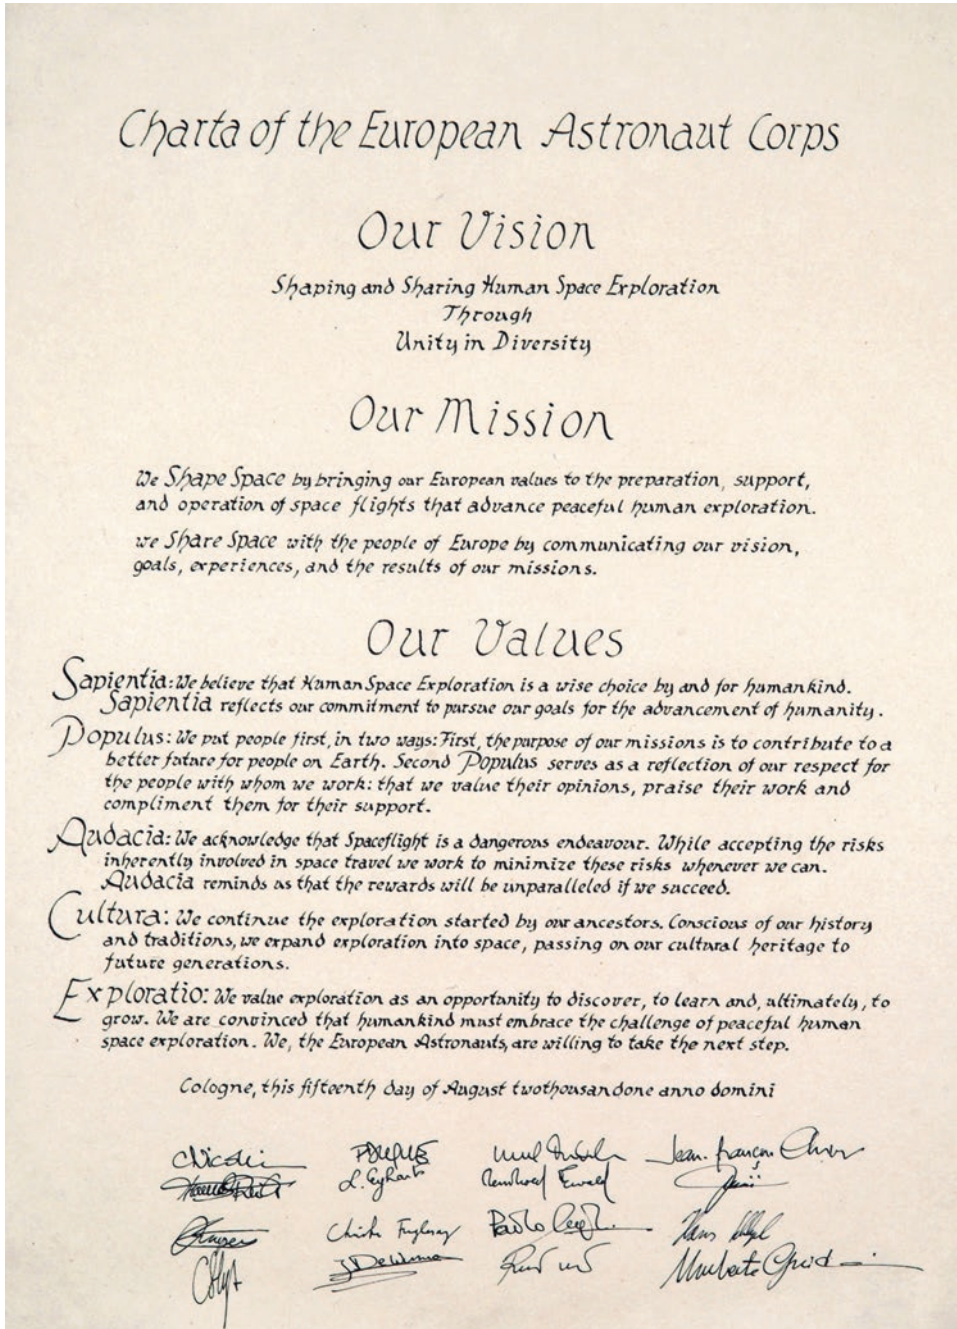 Charta of the European Astronaut Corps
Our Vision
Shaping and Sharing Human Space Exploration
Through
Unity in Diversity
Our Mission
We Shape Space by bringing our European values to the preparation, support,
and operation of space flights that advance peaceful human exploration.
we Share Space with the people of Europe by communicating our vision,
goals, experiences, and the results of our missions.
Our Values
Sapientia: We believe that Human Space Exploration is a wise choice by and for humankind.
Sapientia reflects our commitment to pursue our goals for the advancement of humanity.
Populus: We put people first, in two ways: First, the purpose of our missions is to contribute to a
better future for people on Earth. Second Populus serves as a reflection of our respect for
the people with whom we work: that we value their opinions, praise their work and
compliment them for their support.
Audacia: We acknowledge that Spaceflight is a dangerous endeavour. While accepting the risks
inherently involved in space travel we work to minimize these risks whenever we can.
Audacia reminds us that the rewards will be unparalleled if we succeed.
Cultura: We continue the exploration started by our ancestors. Conscious of our history
and traditions, we expand exploration into space, passing on our cultural heritage to
future generations.
Exploratio: We value exploration as an opportunity to discover, to learn and, ultimately, to
grow. We are convinced that humankind must embrace the challenge of peaceful human
space exploration. We, the European Astronauts, are willing to take the next step.
Cologne, this fifteenth day of August twothousandone anno domini
Jean-François
L. Eyharts Reinhold Ewald
Paolo Hans
Umberto